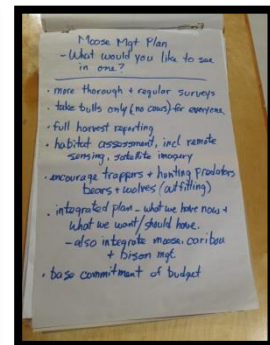 Moose Mgt Plan
- What would you like to see
in one?
• more thorough + regular surveys
• take bulls only (no cows) for everyone
• full harvest reporting
• habitat assessment, incl remote
sensing, satellite imagery
• encourage trappers + hunting predators
bears + wolves (outfitting)
• integrated plan - what we have now +
what we want/should have.
- also integrate moose, caribou
+ bison mgt.
• base commitment of budget